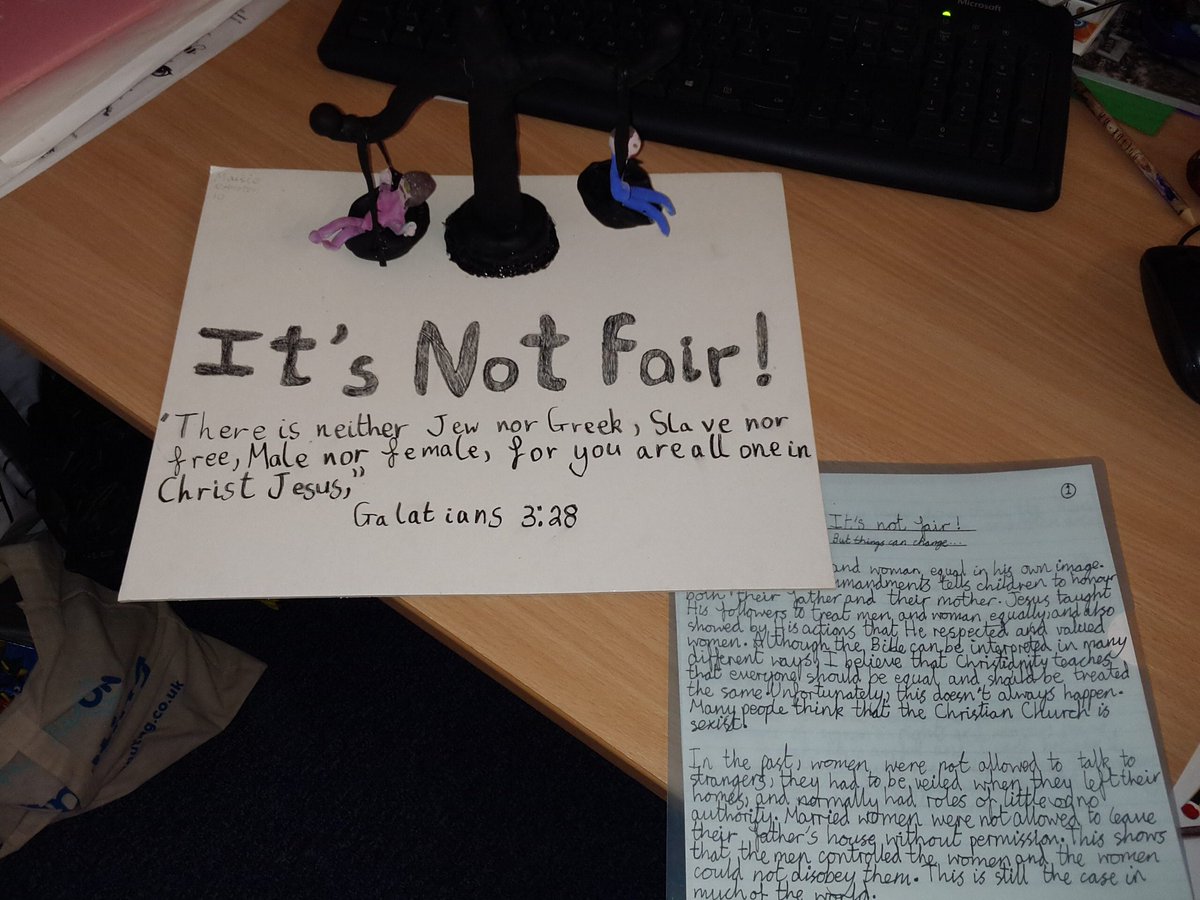 Microsoft
It's Not Fair!
"There is neither Jew nor Greek, Slave nor
free, Male nor female, for you are all one in
Christ Jesus,"
Galatians 3:28
1
It's not fair!
But things can change...
and woman equal in his own image.
mmandments tells children to honour
both their father and their mother. Jesus taught
His followers to treat men and woman equally and also
showed by His actions that He respected and valued
women. Although the Bible can be interpreted in many
different ways, I believe that Christianity teaches
that everyone should be equal and should be treated
the same. Unfortunately, this doesn't always happen.
Many people think that the Christian Church is
sexist.
In the past, women were not allowed to talk to
strangers, they had to be veiled when they left their
homes, and normally had roles of little or no
authority. Married women were not allowed to leave
their father's house without permission. This shows
that the men controlled the women and the women
could not disobey them. This is still the case in
much of the world.
.co.uk